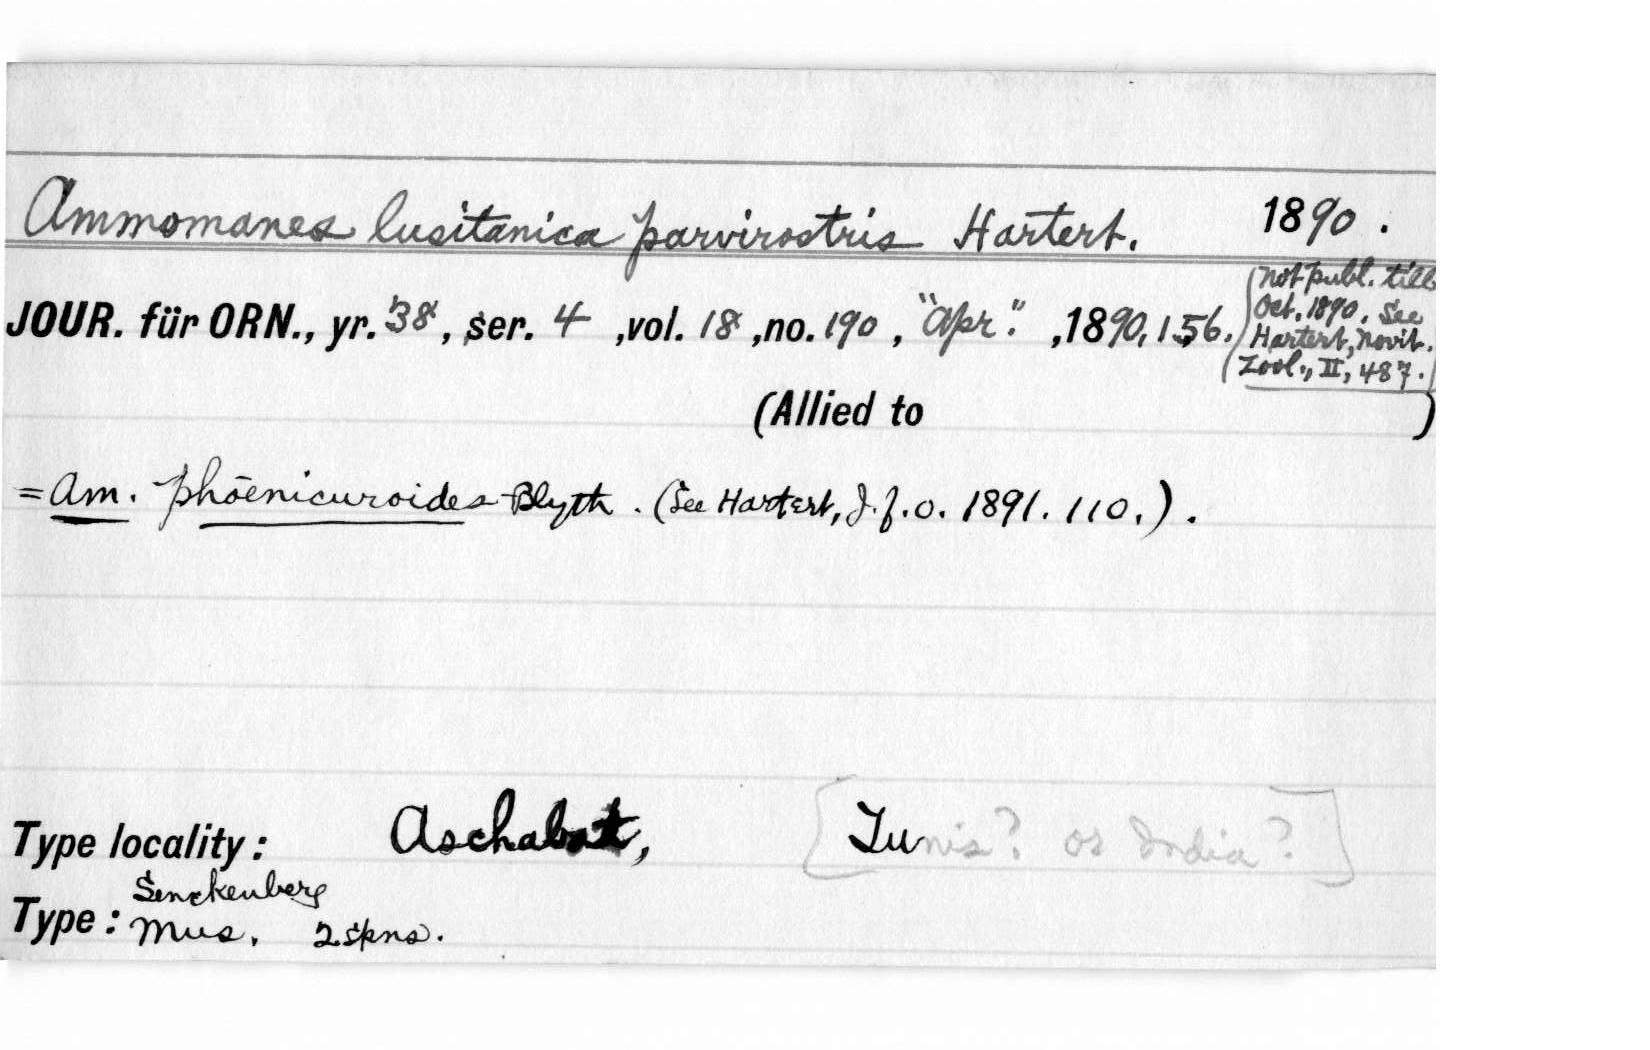 Ammomanes lusitanica parvirostris Hartert. 1890.
JOUR. für ORN., yr. 38, ser. 4, vol. 18, no. 190, "Apr.", 1890, 156.
(not publ. till
Oct. 1890. See
Hartert, Novit.
Zool., II, 487.)
(Allied to )
= Am. phoenicuroides Blyth. (See Hartert, J.f.O. 1891. 110.).
Type locality: Aschabat, [Tunis? or India?]
Type: Senckenberg
Mus. 2 spns.